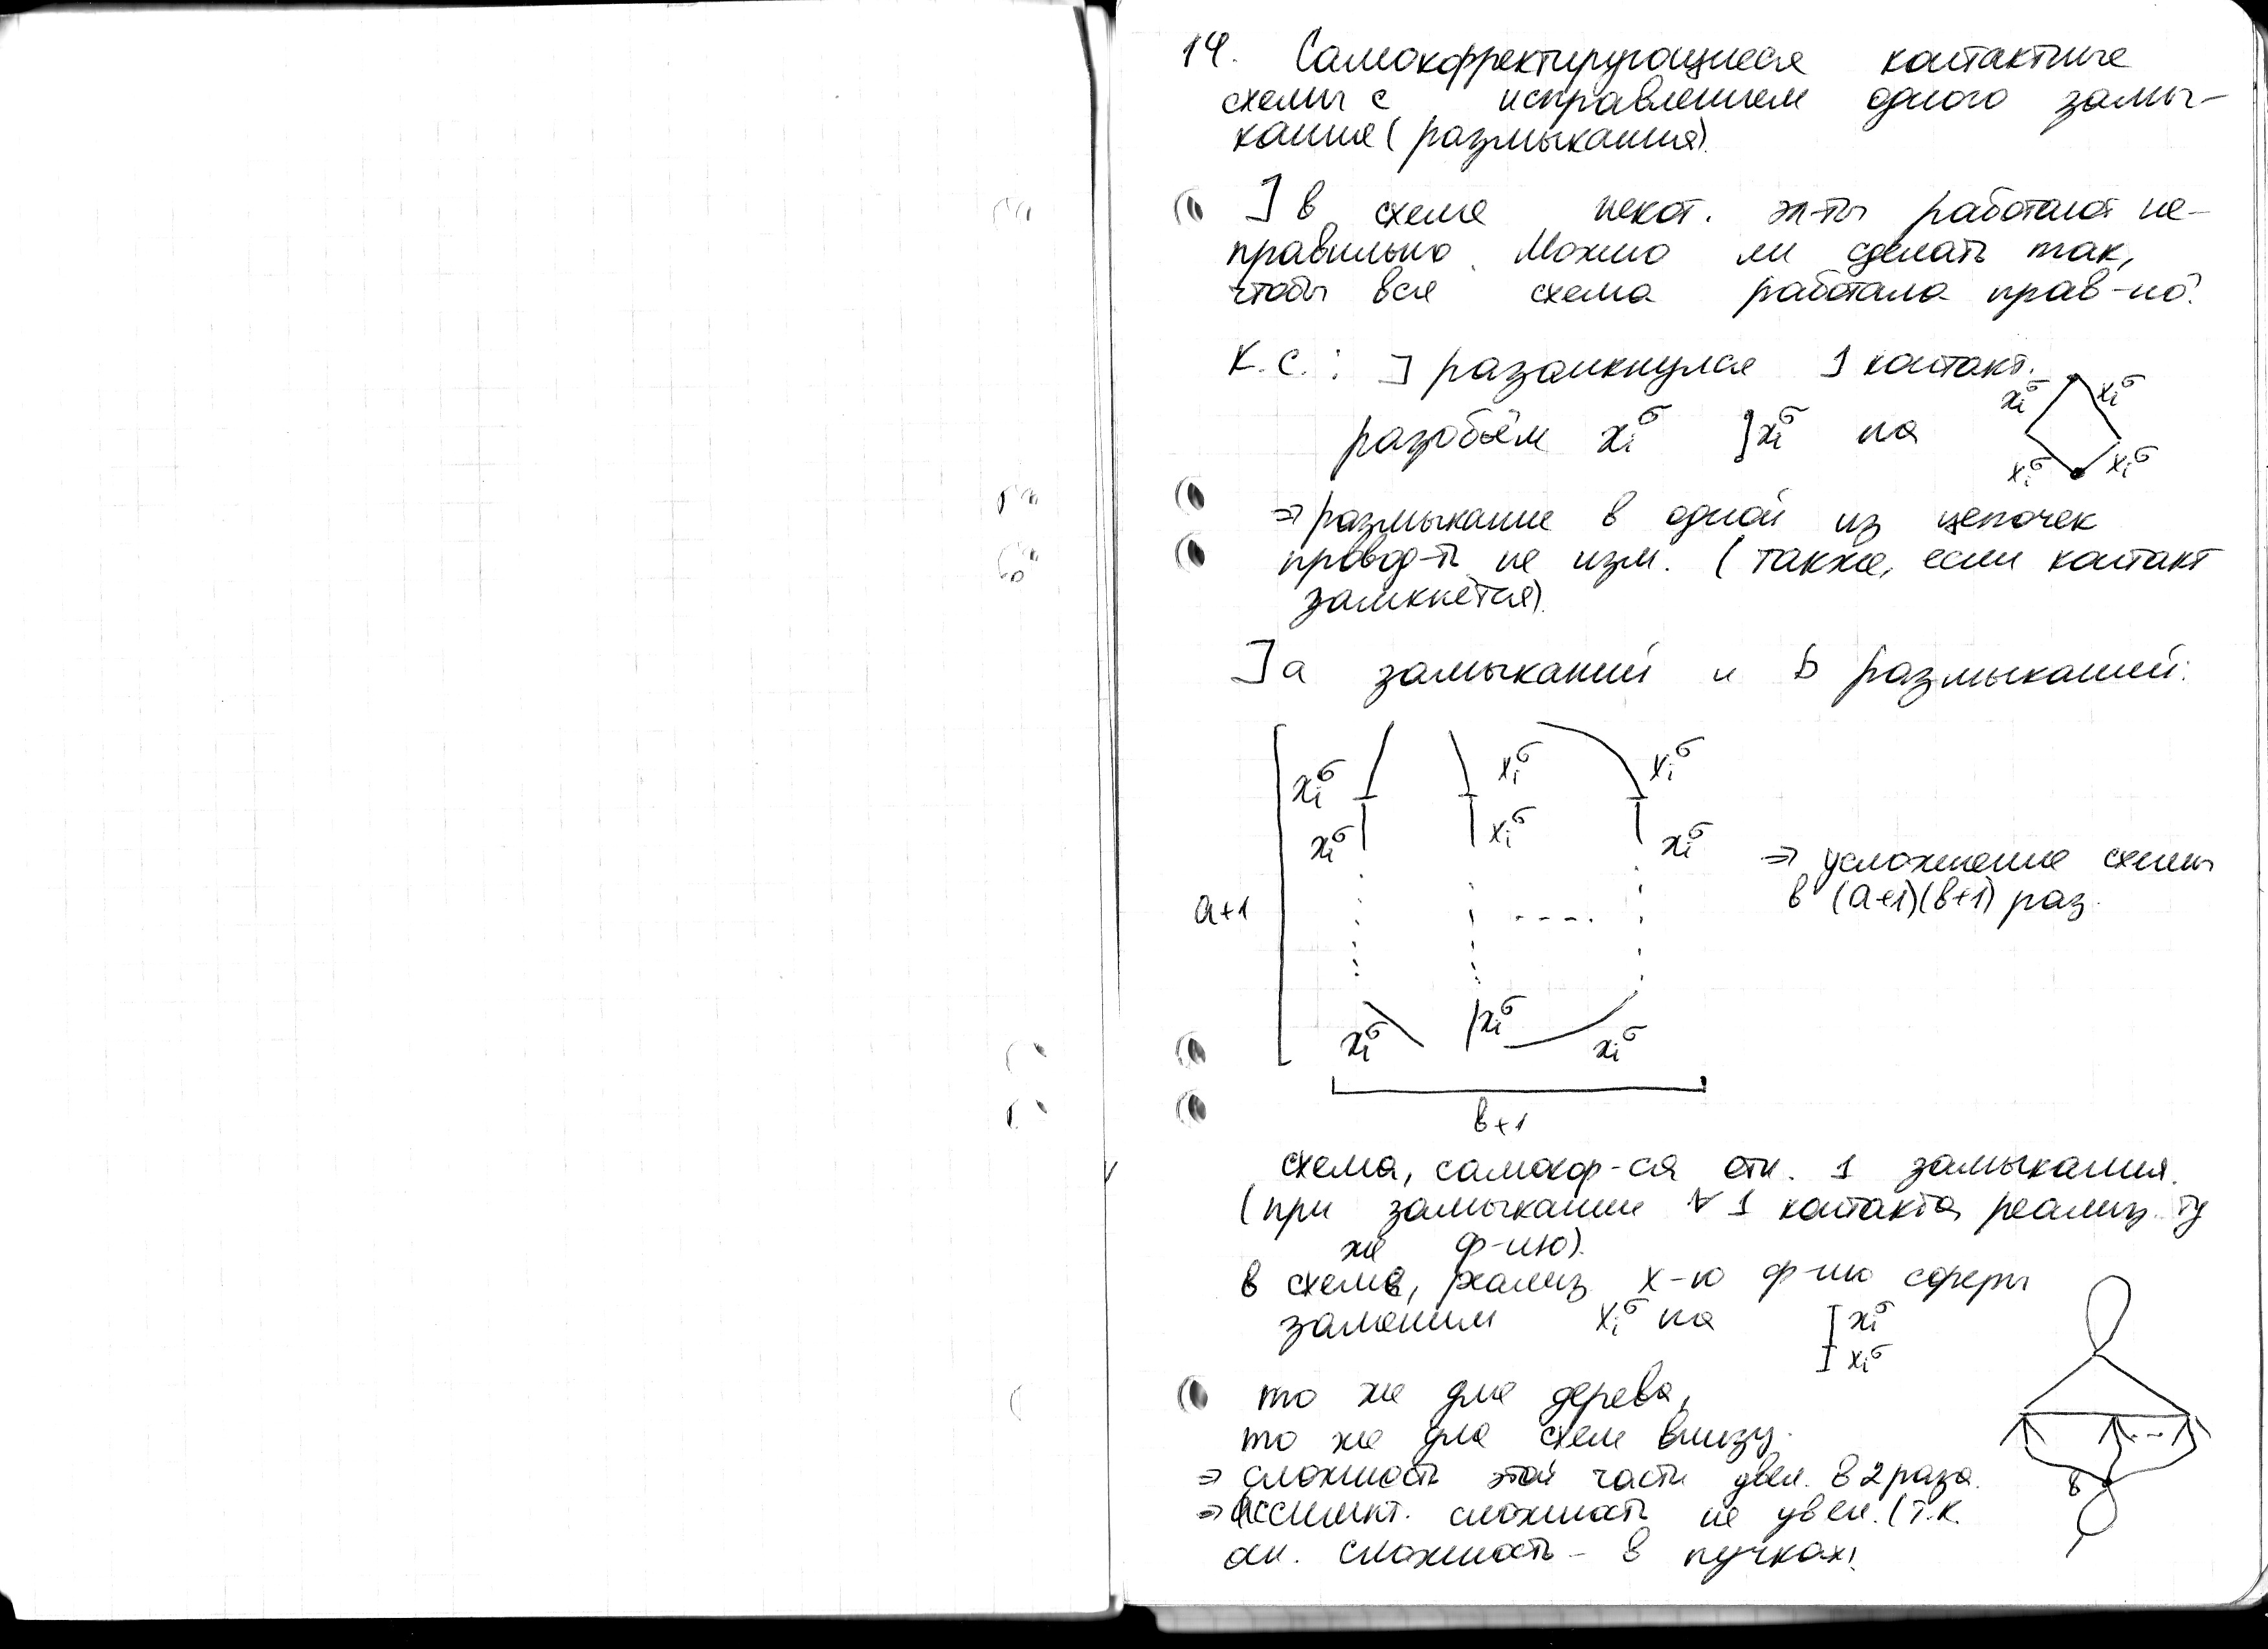 14. Самокорректирующиеся контактные
схемы с исправлением одного замы-
кания (размыкания).
] в схеме некот. эл-ты работают не-
правильно. Можно ли сделать так,
чтобы вся схема работала прав-но?
К.С.: ] разомкнулся 1 контакт.
разобьём xᵢ^σ xᵢ^σ на
xᵢ^σ xᵢ^σ
xᵢ^σ xᵢ^σ
⇒ размыкание в одной из цепочек
провод-ть не изм. (также, если контакт
замкнётся).
] a замыканий и b размыканий:
xᵢ^σ xᵢ^σ xᵢ^σ
xᵢ^σ xᵢ^σ xᵢ^σ
⇒ усложнение схемы
в (a+1)(b+1) раз.
a+1
xᵢ^σ xᵢ^σ xᵢ^σ
b+1
схема, самокор-ся отн. 1 замыкания.
(при замыкании ∀ 1 контакта реализ. ту
же ф-ию).
в схеме, реализ х-ю ф-ию сферы
заменим xᵢ^σ на xᵢ^σ
xᵢ^σ
то же для дерева,
то же для схем внизу.
⇒ сложность этой части увел. в 2 раза.
⇒ Ассимпт. сложность не увел. (т.к.
осн. сложность - в пучках).